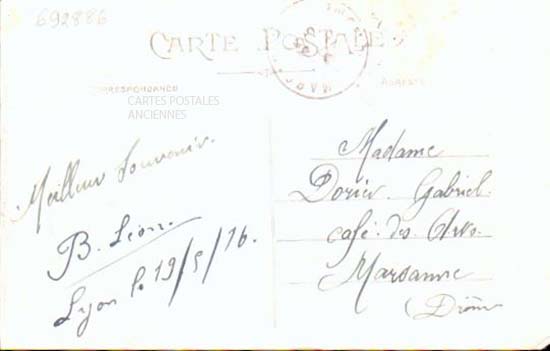 692886
CARTE POSTALE
CORRESPONDANCE
ADRESSE
CARTES POSTALES
ANCIENNES
Meilleur Souvenir.
B. Léon.
Lyon le 19/5/16.
Madame
Dorier Gabriel.
café des Arts.
Marsanne
(Drôme